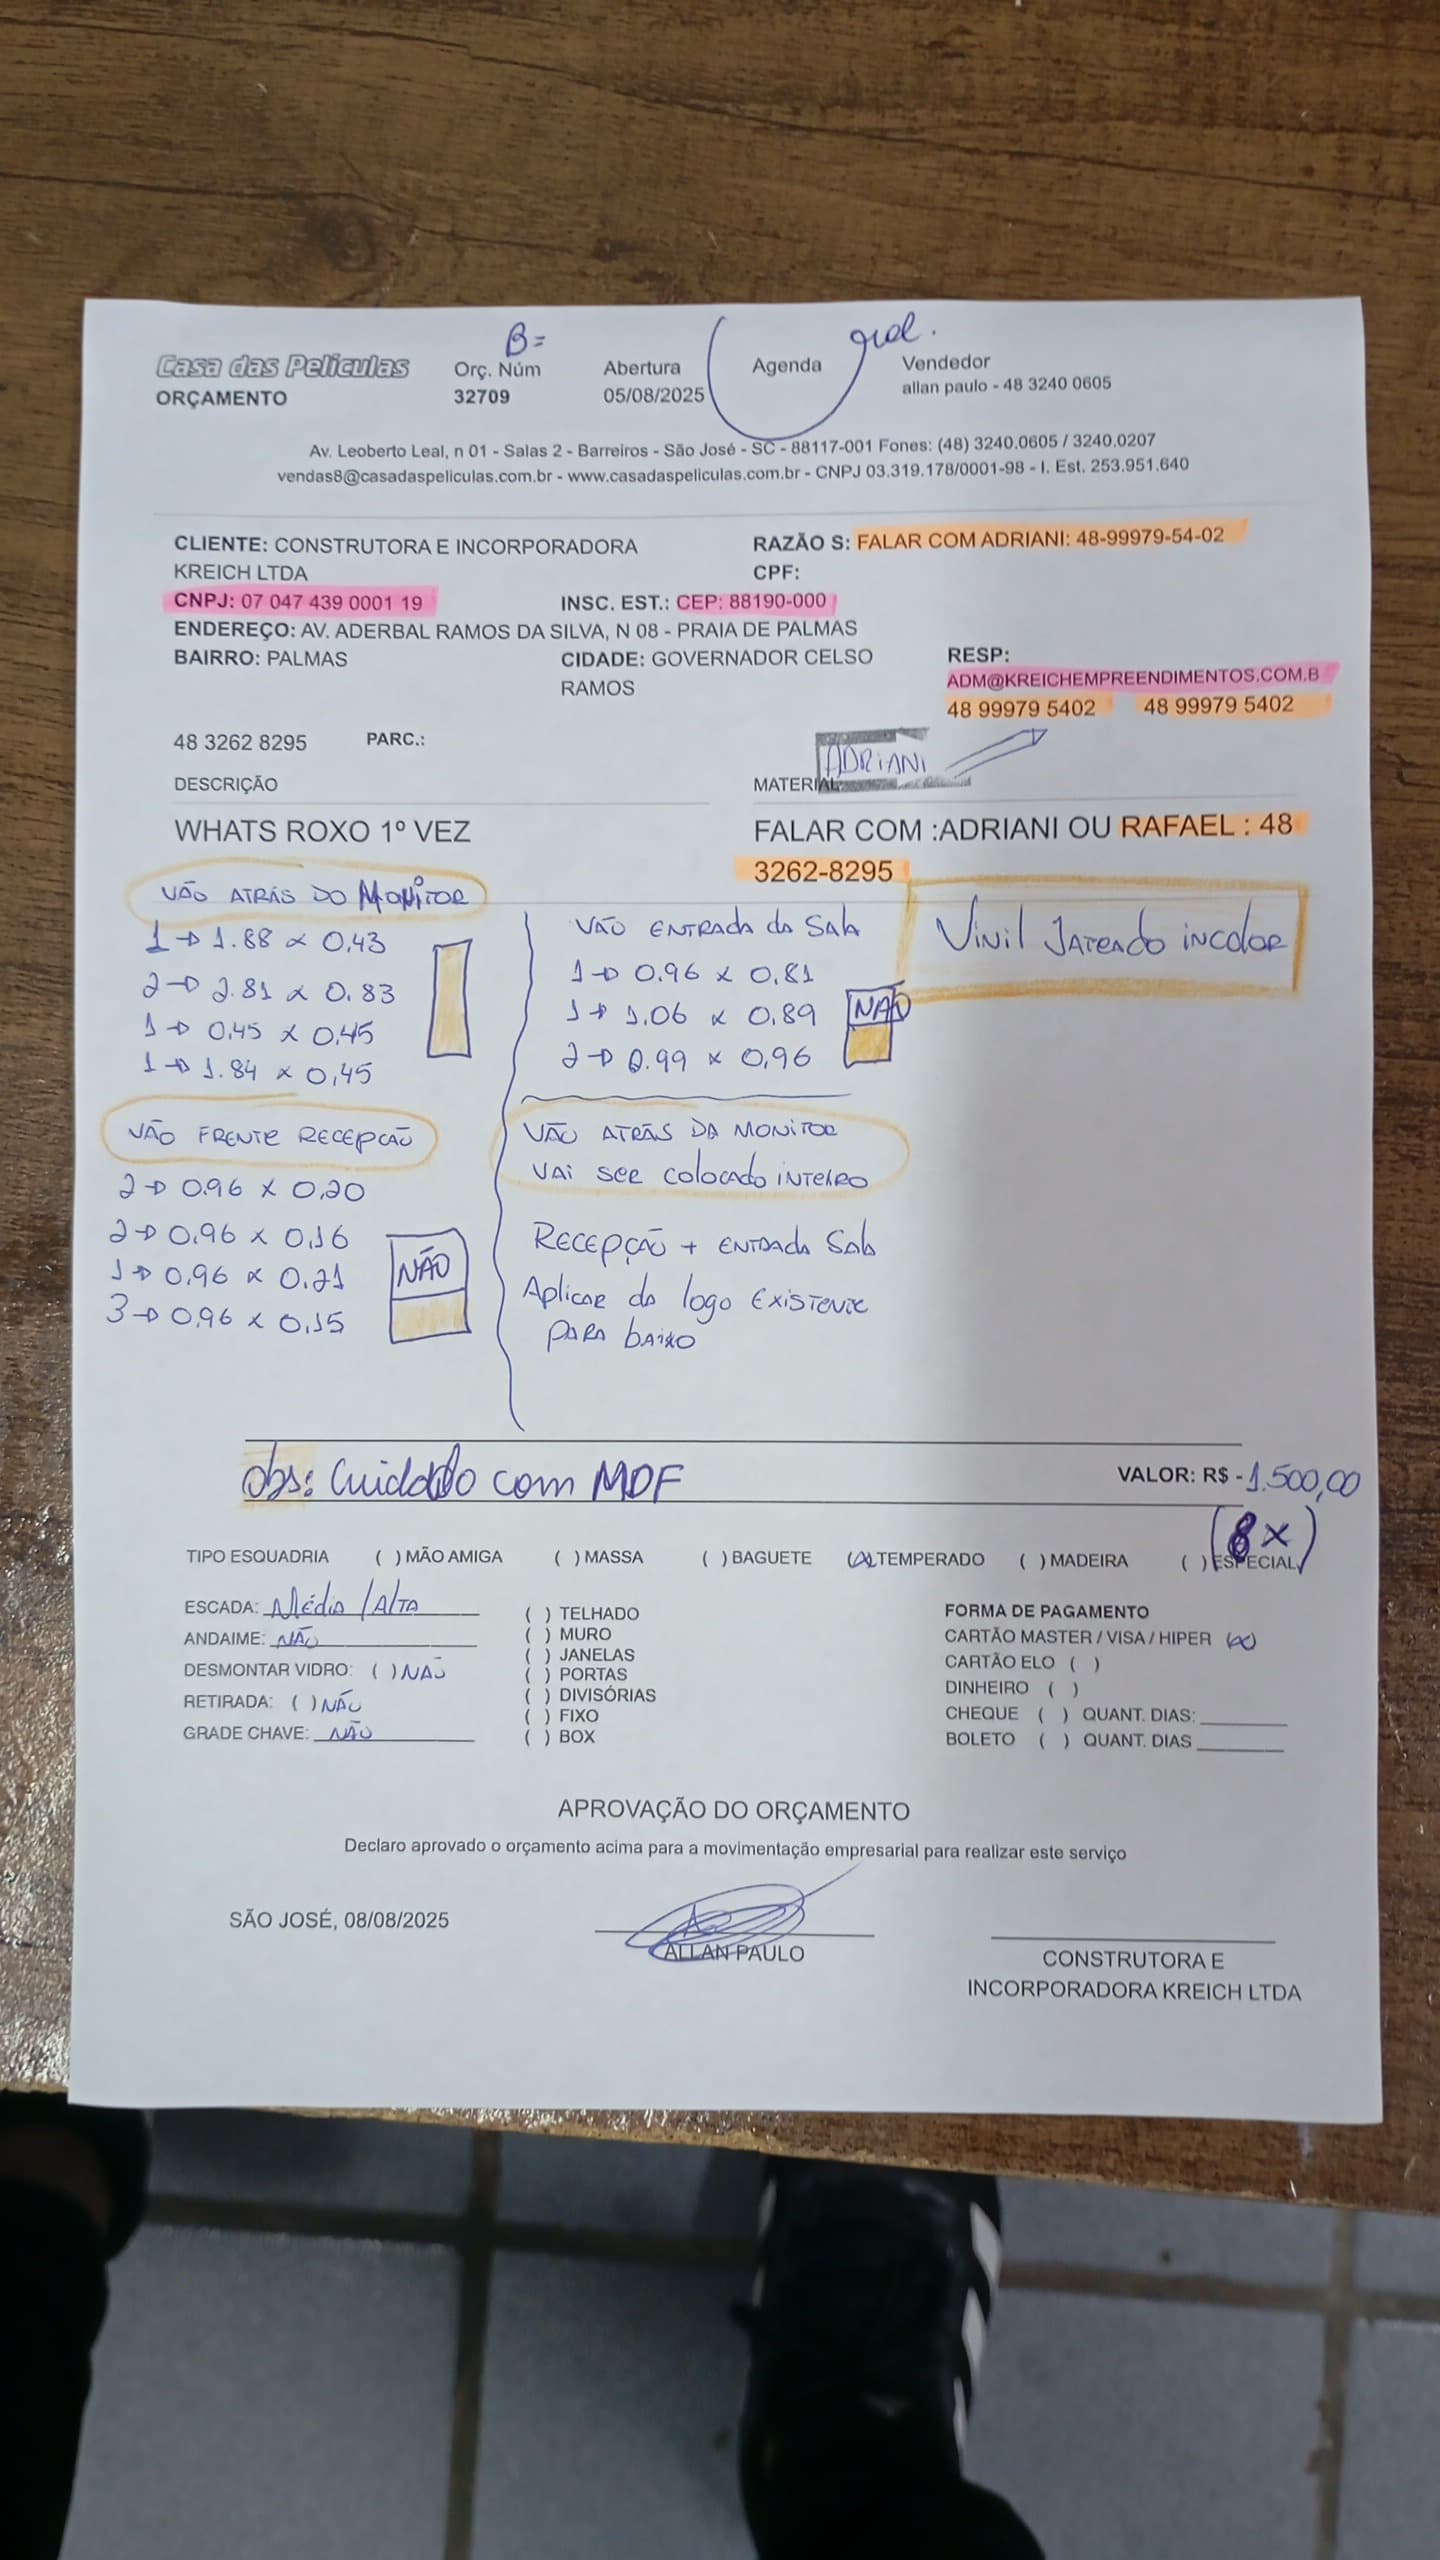 B=
Casa das Películas
ORÇAMENTO
Orç. Núm
32709
Abertura
05/08/2025
Agenda
Vendedor
allan paulo - 48 3240 0605
Av. Leoberto Leal, n 01 - Salas 2 - Barreiros - São José - SC - 88117-001 Fones: (48) 3240.0605 / 3240.0207
vendas8@casadaspeliculas.com.br - www.casadaspeliculas.com.br - CNPJ 03.319.178/0001-98 - I. Est. 253.951.640
CLIENTE: CONSTRUTORA E INCORPORADORA
KREICH LTDA
RAZÃO S: FALAR COM ADRIANI: 48-99979-54-02
CPF:
CNPJ: 07 047 439 0001 19
INSC. EST.: CEP: 88190-000
ENDEREÇO: AV. ADERBAL RAMOS DA SILVA, N 08 - PRAIA DE PALMAS
BAIRRO: PALMAS
CIDADE: GOVERNADOR CELSO
RAMOS
RESP:
ADM@KREICHEMPREENDIMENTOS.COM.B
48 99979 5402 48 99979 5402
48 3262 8295 PARC.:
ADRIANI
DESCRIÇÃO
MATERIAL
WHATS ROXO 1º VEZ
FALAR COM :ADRIANI OU RAFAEL : 48
3262-8295
VÃO ATRÁS DO MONITOR
1→ 1.88 x 0,43
2→ 2.81 x 0.83
1→ 0,45 x 0,45
1→ 1.84 x 0,45
VÃO FRENTE RECEPÇÃO
2→ 0.96 x 0,20
2→ 0,96 x 0,16
1→ 0,96 x 0,21
3→ 0,96 x 0,15
NÃO
VÃO ENTRADA da SALA
1→ 0.96 x 0,81
1→ 1.06 x 0,89
2→ 0.99 x 0,96
NÃO
Vinil Jateado incolor
VÃO ATRÁS DA MONITOR
VAI SER COLOCADO INTEIRO
RECEPÇÃO + ENTRADA SALA
Aplicar da logo EXISTENTE
PARA baixo
obs: Cuidado com MDF
VALOR: R$ - 1.500,00
(8x)
TIPO ESQUADRIA ( ) MÃO AMIGA ( ) MASSA ( ) BAGUETE (x) TEMPERADO ( ) MADEIRA ( ) ESPECIAL
ESCADA: Média / ALTA
ANDAIME: NÃO
DESMONTAR VIDRO: ( ) NÃO
RETIRADA: ( ) NÃO
GRADE CHAVE: NÃO
( ) TELHADO
( ) MURO
( ) JANELAS
( ) PORTAS
( ) DIVISÓRIAS
( ) FIXO
( ) BOX
FORMA DE PAGAMENTO
CARTÃO MASTER / VISA / HIPER (x)
CARTÃO ELO ( )
DINHEIRO ( )
CHEQUE ( ) QUANT. DIAS:
BOLETO ( ) QUANT. DIAS
APROVAÇÃO DO ORÇAMENTO
Declaro aprovado o orçamento acima para a movimentação empresarial para realizar este serviço
SÃO JOSÉ, 08/08/2025
ALLAN PAULO
CONSTRUTORA E
INCORPORADORA KREICH LTDA